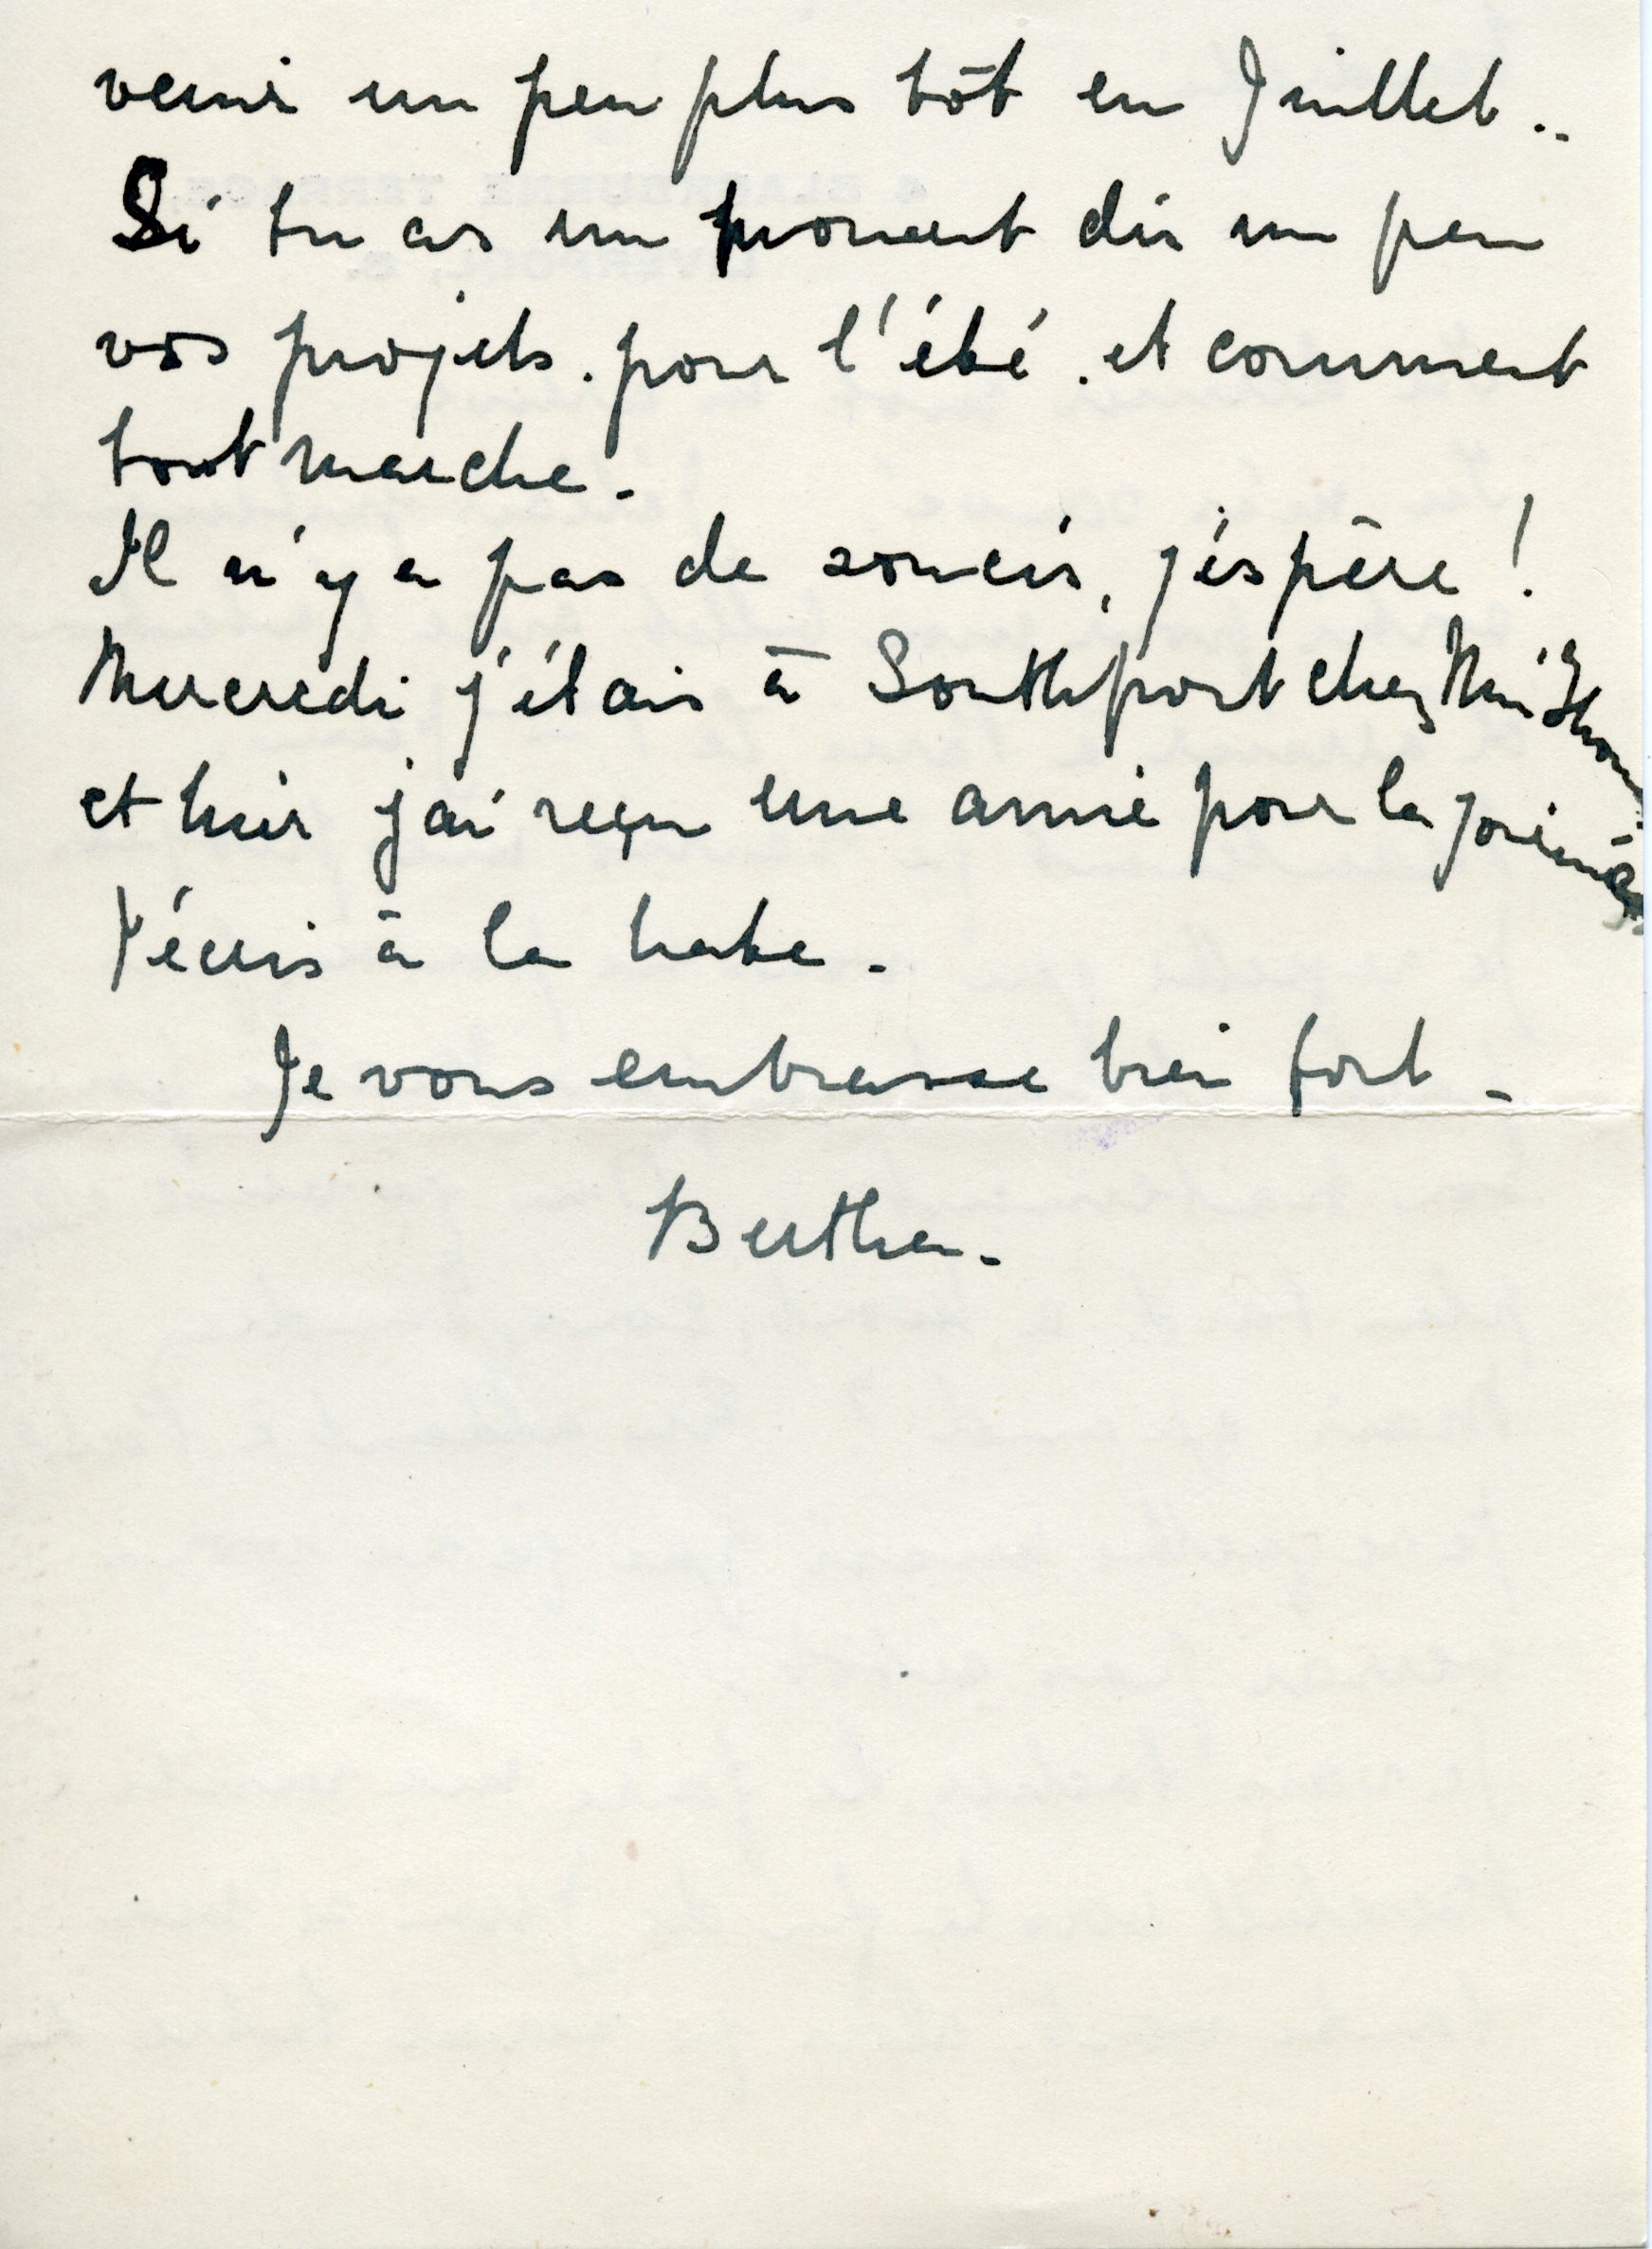 venir un peu plus tôt en Juillet..
Si tu as un moment dis un peu
vos projets. pour l'été. et comment
tout marche.
Il n'y a pas de soucis, j'éspère !
Mercredi j'étais à Southport chez
et hier j'ai reçu une amie pour la journée
J'écris à la hate.
Je vous embrasse bien fort -
Bertha.